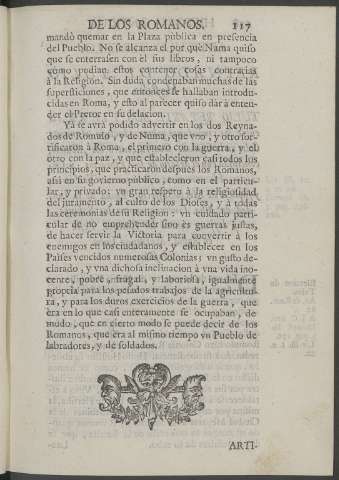 DE LOS ROMANOS. 117
mandò quemar en la Plaza publica en presencia
del Pueblo. No se alcanza el por què Numa quiso
que se enterrasen con èl sus libros, ni tampoco
como podian estos contener cosas contrarias
à la Religion. Sin duda condenaban muchas de las
supersticiones, que entonces se hallaban introdu-
cidas en Roma, y esto al parecer quiso dàr à enten-
der el Pretor en su delacion.
Yà se avrà podido advertir en los dos Reyna-
dos de Romulo, y de Numa, que vno, y otro for-
tificaron à Roma, el primero con la guerra, y el
otro con la paz, y que establecieron casi todos los
principios, que practicaron despues los Romanos,
assi en su govierno publico, como en el particu-
lar, y privado: vn gran respeto à la religiosidad
del juramento, al culto de los Dioses, y à todas
las ceremonias de su Religion: vn cuidado parti-
cular de no emprehender sino es guerras justas,
de hacer servir la Victoria para convertir à los
enemigos en los ciudadanos, y establecer en los
Païses vencidos numerosas Colonias: vn gusto de-
clarado, y vna dichosa inclinacion à vna vida ino-
cente, pobre, frugal, y laboriosa, igualmente
propria para los pesados trabajos de la agricultu-
ra, y para los duros exercicios de la guerra, que
era en lo que casi enteramente se ocupaban, de
modo, que en cierto modo se puede decir de los
Romanos, que era al mismo tiempo vn Pueblo de
labradores, y de soldados.
ARTI-